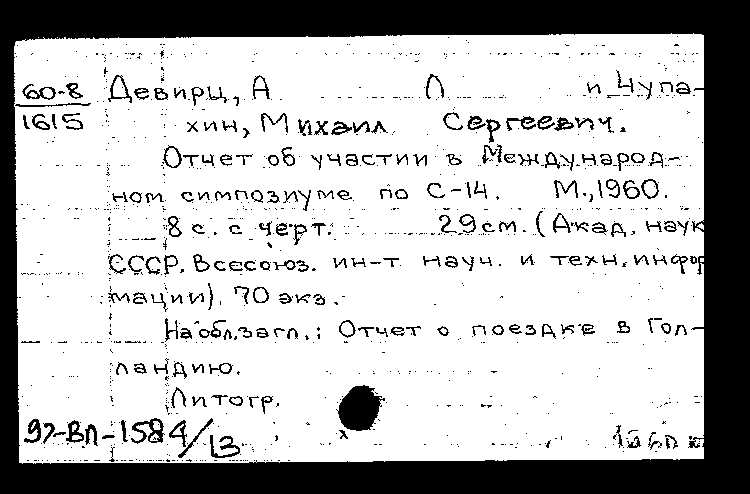 60-8 Девирц, А Л и Чупа-
1615 хин, Михаил Сергеевич.
Отчет об участии в Международ-
ном симпозиуме по С-14. М., 1960.
8 с. с черт. 29 см. (Акад. наук
СССР. Всесоюз. ин-т науч. и техн. инфор
мации). 70 экз.
На обл. загл.: Отчет о поездке в Гол-
ландию.
Литогр.
97-ВЛ-1584/13